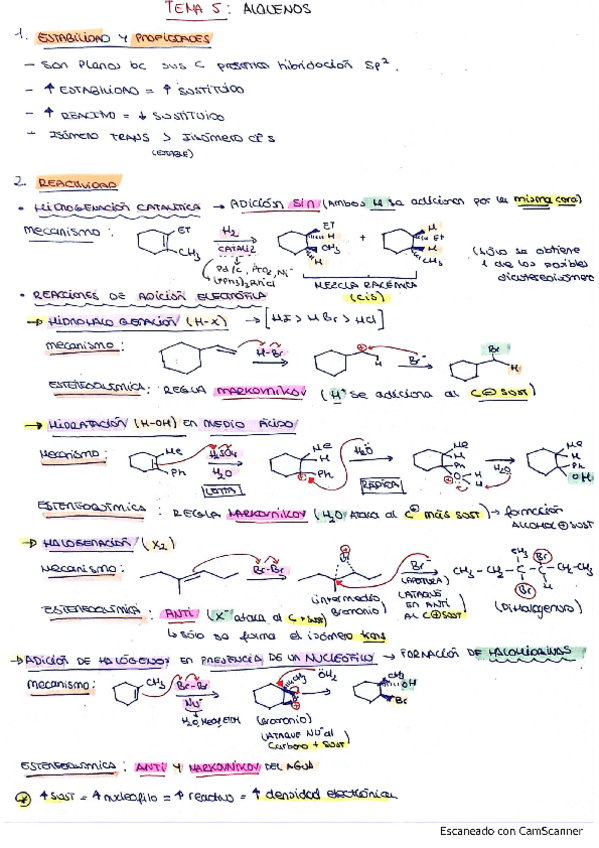 TEMA 5: ALQUENOS
1. ESTABILIDAD Y PROPIEDADES
- Son planos bc sus C presentan hibridación Sp².
- ↑ ESTABILIDAD = ↑ SUSTITUIDO
- ↑ REACTIVO = ↓ SUSTITUIDO
- ISÓMERO TRANS > ISÓMERO CIS
(ESTABLE)
2. REACTIVIDAD
• HIDROGENACIÓN CATALÍTICA → ADICIÓN SIN (Ambos H se adicionan por la misma cara)
MECANISMO:
ET
CH3
H2
CATALIZ
Pd/C, PtO2, Ni
ET
H
CH3
H
+
H
ET
H
CH3
MEZCLA RACÉMICA
(CIS)
(Sólo se obtiene
1 de los posibles
diastereoisómeros
• REACCIONES DE ADICIÓN ELECTRÓFILA
→ HIDROHALOGENACIÓN (H-X) → [HI > HBr > HCl]
MECANISMO:
H-Br
H
Br⁻
Br
H
ESTEREOQUÍMICA: REGLA MARKOVNIKOV (H⁺ se adiciona al C⊕ SUST)
→ HIDRATACIÓN (H-OH) EN MEDIO ÁCIDO
MECANISMO:
Me
Ph
H2SO4
H2O
LENTA
Me
H
Ph
H2O
RÁPIDA
Me
H
Ph
O
H
H
H2O
Me
H
Ph
OH
ESTEREOQUÍMICA: REGLA MARKOVNIKOV (H2O ataca al C⊕ más SUST) → formación
ALCOHOL ⊕ SUST
→ HALOGENACIÓN (X2)
MECANISMO:
Br-Br
Br
(intermedio
Bromonio)
Br
(APERTURA)
(ATAQUE
EN ANTI
AL C⊕SUST)
CH3
Br
CH3-CH2-C-C-CH2-CH3
Br
H
(DIHALÓGENO)
ESTEREOQUÍMICA: ANTI (X⁻ ataca al C+SUST)
↳ Sólo se forma el isómero trans
→ ADICIÓN DE HALÓGENOS EN PRESENCIA DE UN NUCLEÓFILO → FORMACIÓN DE HALOHIDRINAS
MECANISMO:
CH3
Br-Br
Nu⁻
H2O, MeOH, EtOH
CH3
Br
(Bromonio)
(ATAQUE NU⁻ al
Carbono + SUST
OH2
CH3
OH
Br
ESTEREOQUÍMICA: ANTI Y MARKOVNIKOV DEL AGUA
↑ SUST = ↑ nucleófilo = ↑ reactivo = ↑ densidad electrónica
Escaneado con CamScanner